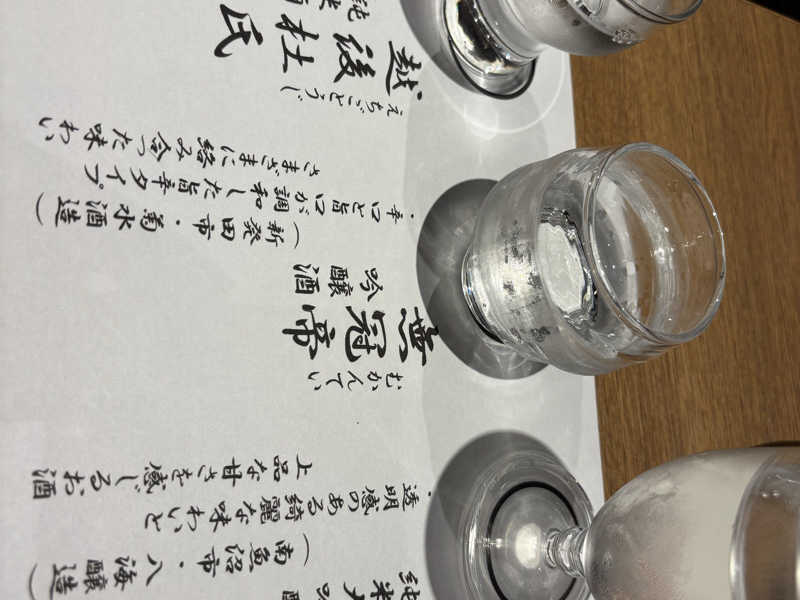 純米大吟醸
（南魚沼市・八海醸造）
・透明感のある綺麗な味わいと
上品な甘さを感じるお酒
むかんてい
無冠帝
吟醸酒
（新発田市・菊水酒造）
・辛口と旨口が調和した旨辛タイプ
さまざまに絡み合った味わい
えちごとうじ
越後杜氏